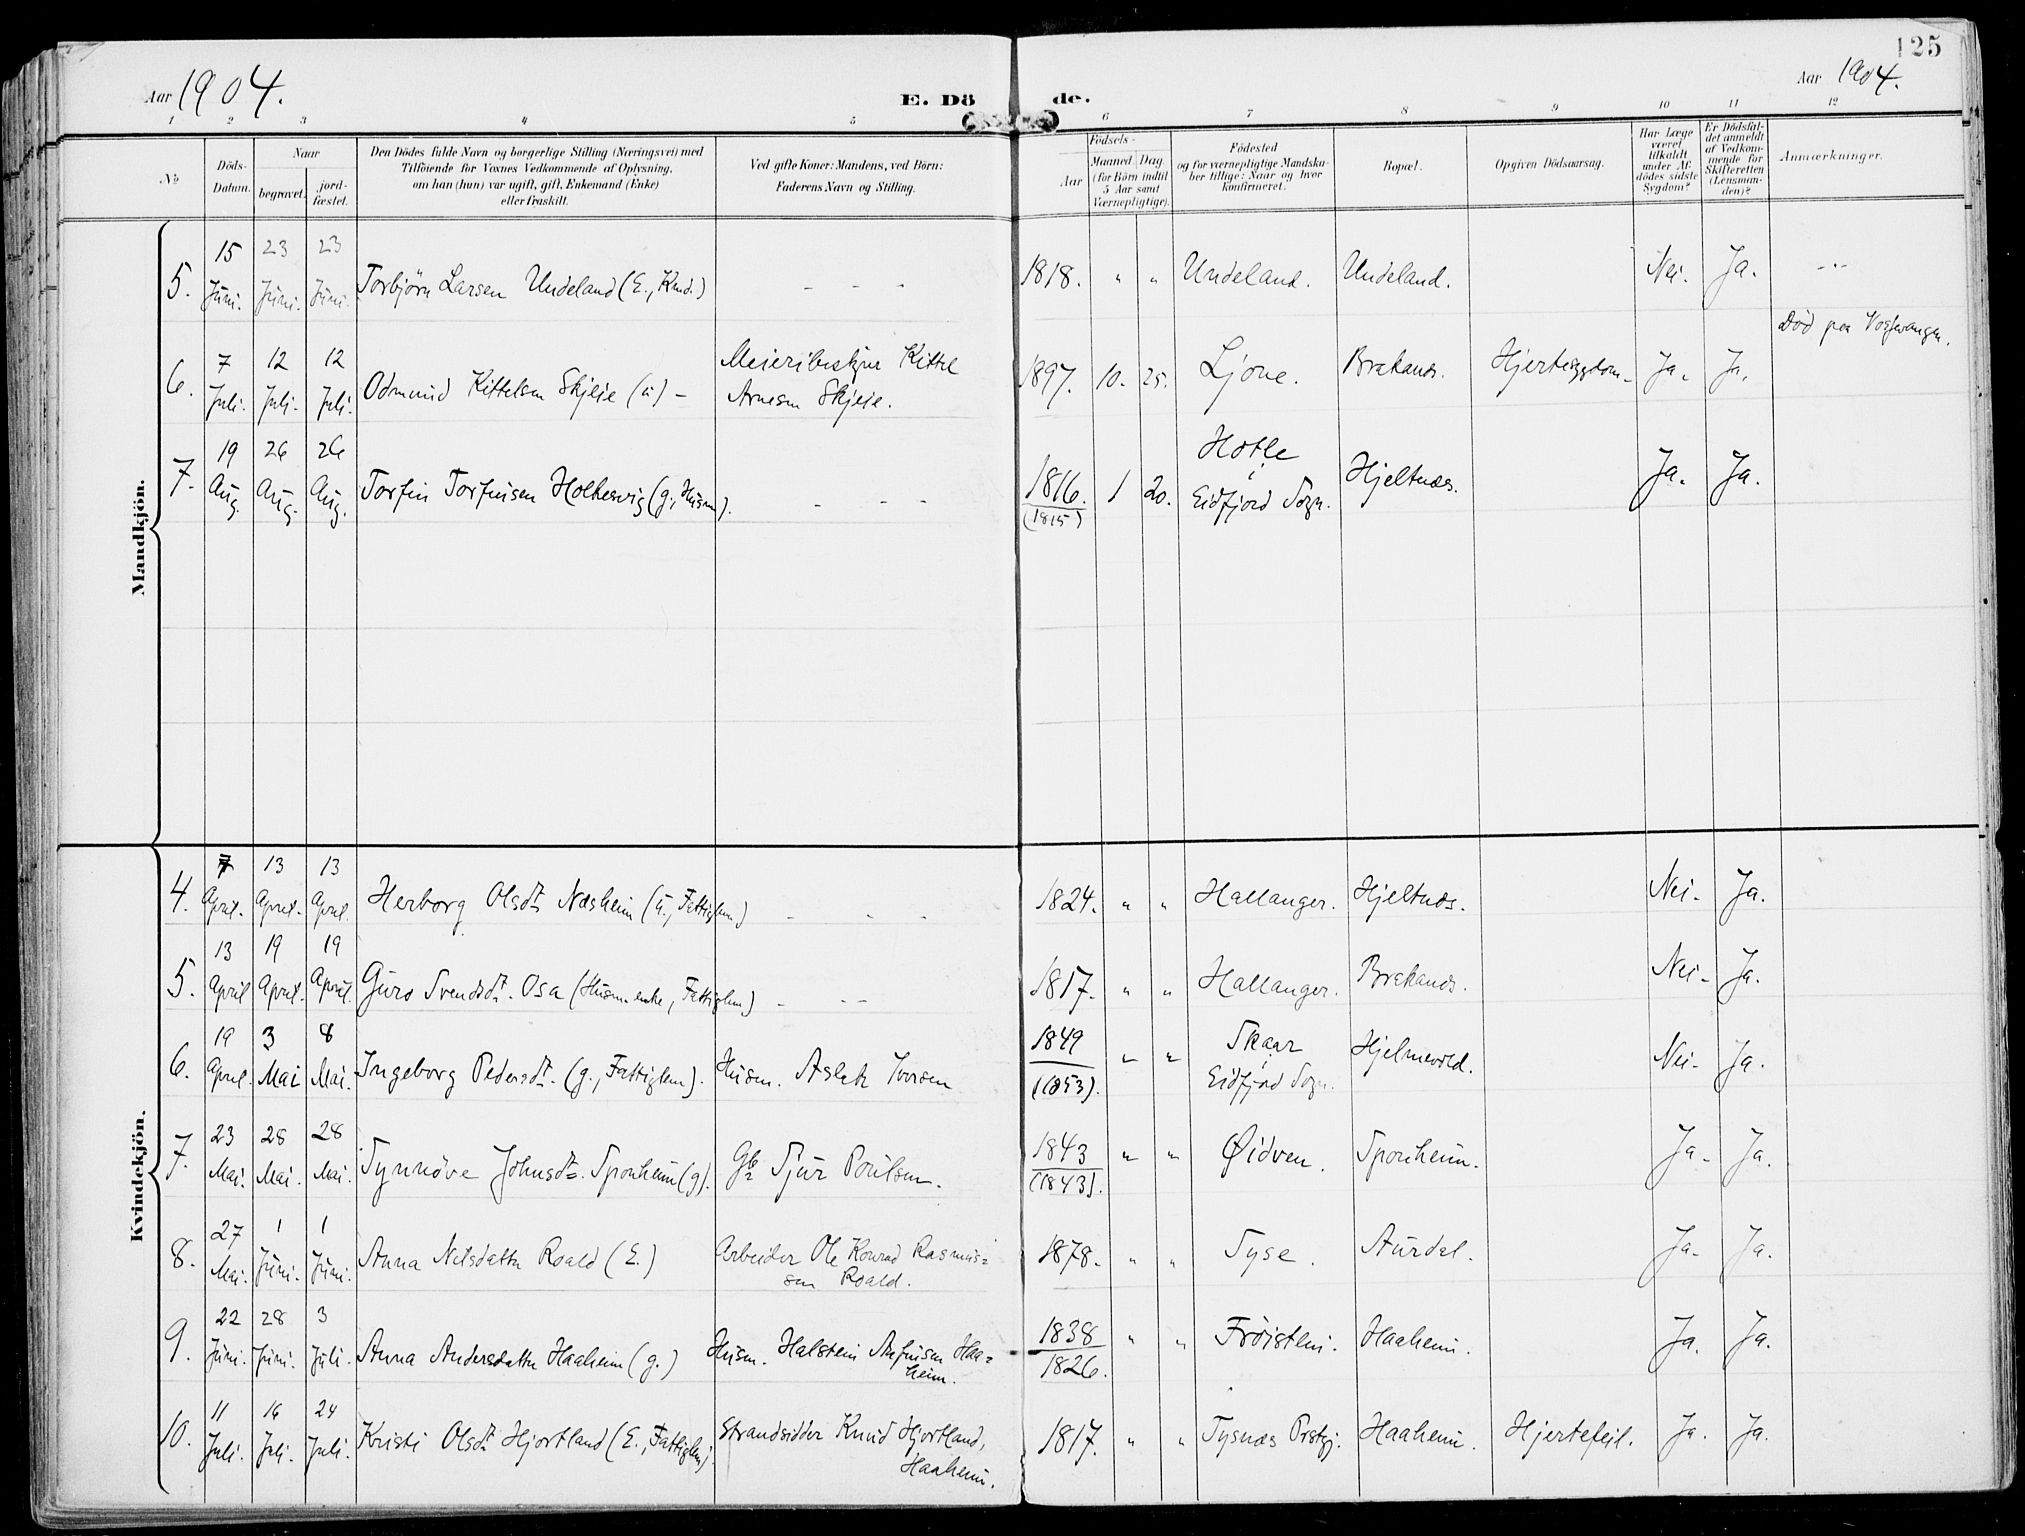 125
Aar 1904.
E. Dö de.
Aar 1904.
1 2 3 4 5 6 7 8 9 10 11 12
No
Döds-Datum.
Naar
begravet.
jord-fæstet.
Den Dödes fulde Navn og borgerlige Stilling (Næringsvei) med
Tilföiende for Voxnes Vedkommende af Oplysning,
om han (hun) var ugift, gift, Enkemand (Enke)
eller fraskilt.
Ved gifte Koner: Mandens, ved Börn:
Faderens Navn og Stilling.
Födsels-
Aar
Maaned Dag
(for Börn indtil
5 Aar samt
Værnepligtige).
Födested
og for værnepligtige Mandska-
ber tillige: Naar og hvor
konfirmeret.
Bopæl.
Opgiven Dödsaarsag.
Har Læge
været
tilkaldt
under Af-
dödes sidste
Sygdom?
Er Dödsfal-
det anmeldt
af Vedkom-
mende for
Skifteretten
(Lensman-
den)?
Anmærkninger.
Mandkjön.
5. 15 Juni. 23 Juni. 23 Juni. Torbjörn Larsen Undeland (E., Kmd.) - - - 1818. " " Undeland. Undeland. Nei. Ja. - -
Död paa Vossevangen.
6. 7 Juli. 12 Juli. 12 Juli. Odmund Kittelsen Skjeie (u) - Meieribestyrer Kittel
Arnesen Skjeie. 1897. 10. 25. Ljone. Brakanes. Hjertesygdom. Ja. Ja.
7. 19 Aug. 26 Aug. 26 Aug. Torfin Torfinsen Holkesvig (g., Husm). - - - 1816. (1815) 1 20. Hotle
i
Eidfjord Sogn. Hjeltnæs. Ja. Ja.
Kvindekjön.
4. 7 April. 13 April. 13 April. Herborg Olsdt. Næsheim (u., Fattiglem) - - - 1824. " " Hallanger. Hjeltnæs. Nei. Ja.
5. 13 April 19 April. 19 April. Guro Svendsdt. Osa (Husm.enke, Fattiglem) - - - 1817. " " Hallanger. Brakanes. Nei. Ja.
6. 19 April. 3 Mai 8 Mai. Ingeborg Pedersdt. (g., Fattiglem). Husm. Aslak Iversen 1849 (1853). " " Skaar
i
Eidfjord Sogn. Hjelmevold. Nei. Ja.
7. 23 Mai. 28 Mai. 28 Mai. Synnöve Johnsdt. Sponheim (g). Gbr Sjur Poulsen. 1843 (1843). " " Øidven. Sponheim. Ja. Ja.
8. 27 Mai. 1 Juni. 1 Juni. Anna Nilsdatter Roald (E.) Arbeider Ole Konrad Rasmus=
sen Roald. 1878. " " Tyse. Aurdal. Ja. Ja.
9. 22 Juni. 28 Juni. 3 Juli. Anna Andersdatter Haaheim (g.) Husm. Halstein Arfinsen Haa=
heim. 1838 1826. " " Fröistein. Haaheim. Ja. Ja.
10. 11 Juli. 16 Juli. 24 Juli. Kristi Olsdt. Hjortland (E., Fattiglem). Strandsidder Knud Hjortland,
Haaheim. 1817. " " Tysnæs Prstgj. Haaheim. Hjertefeil. Ja. Ja.